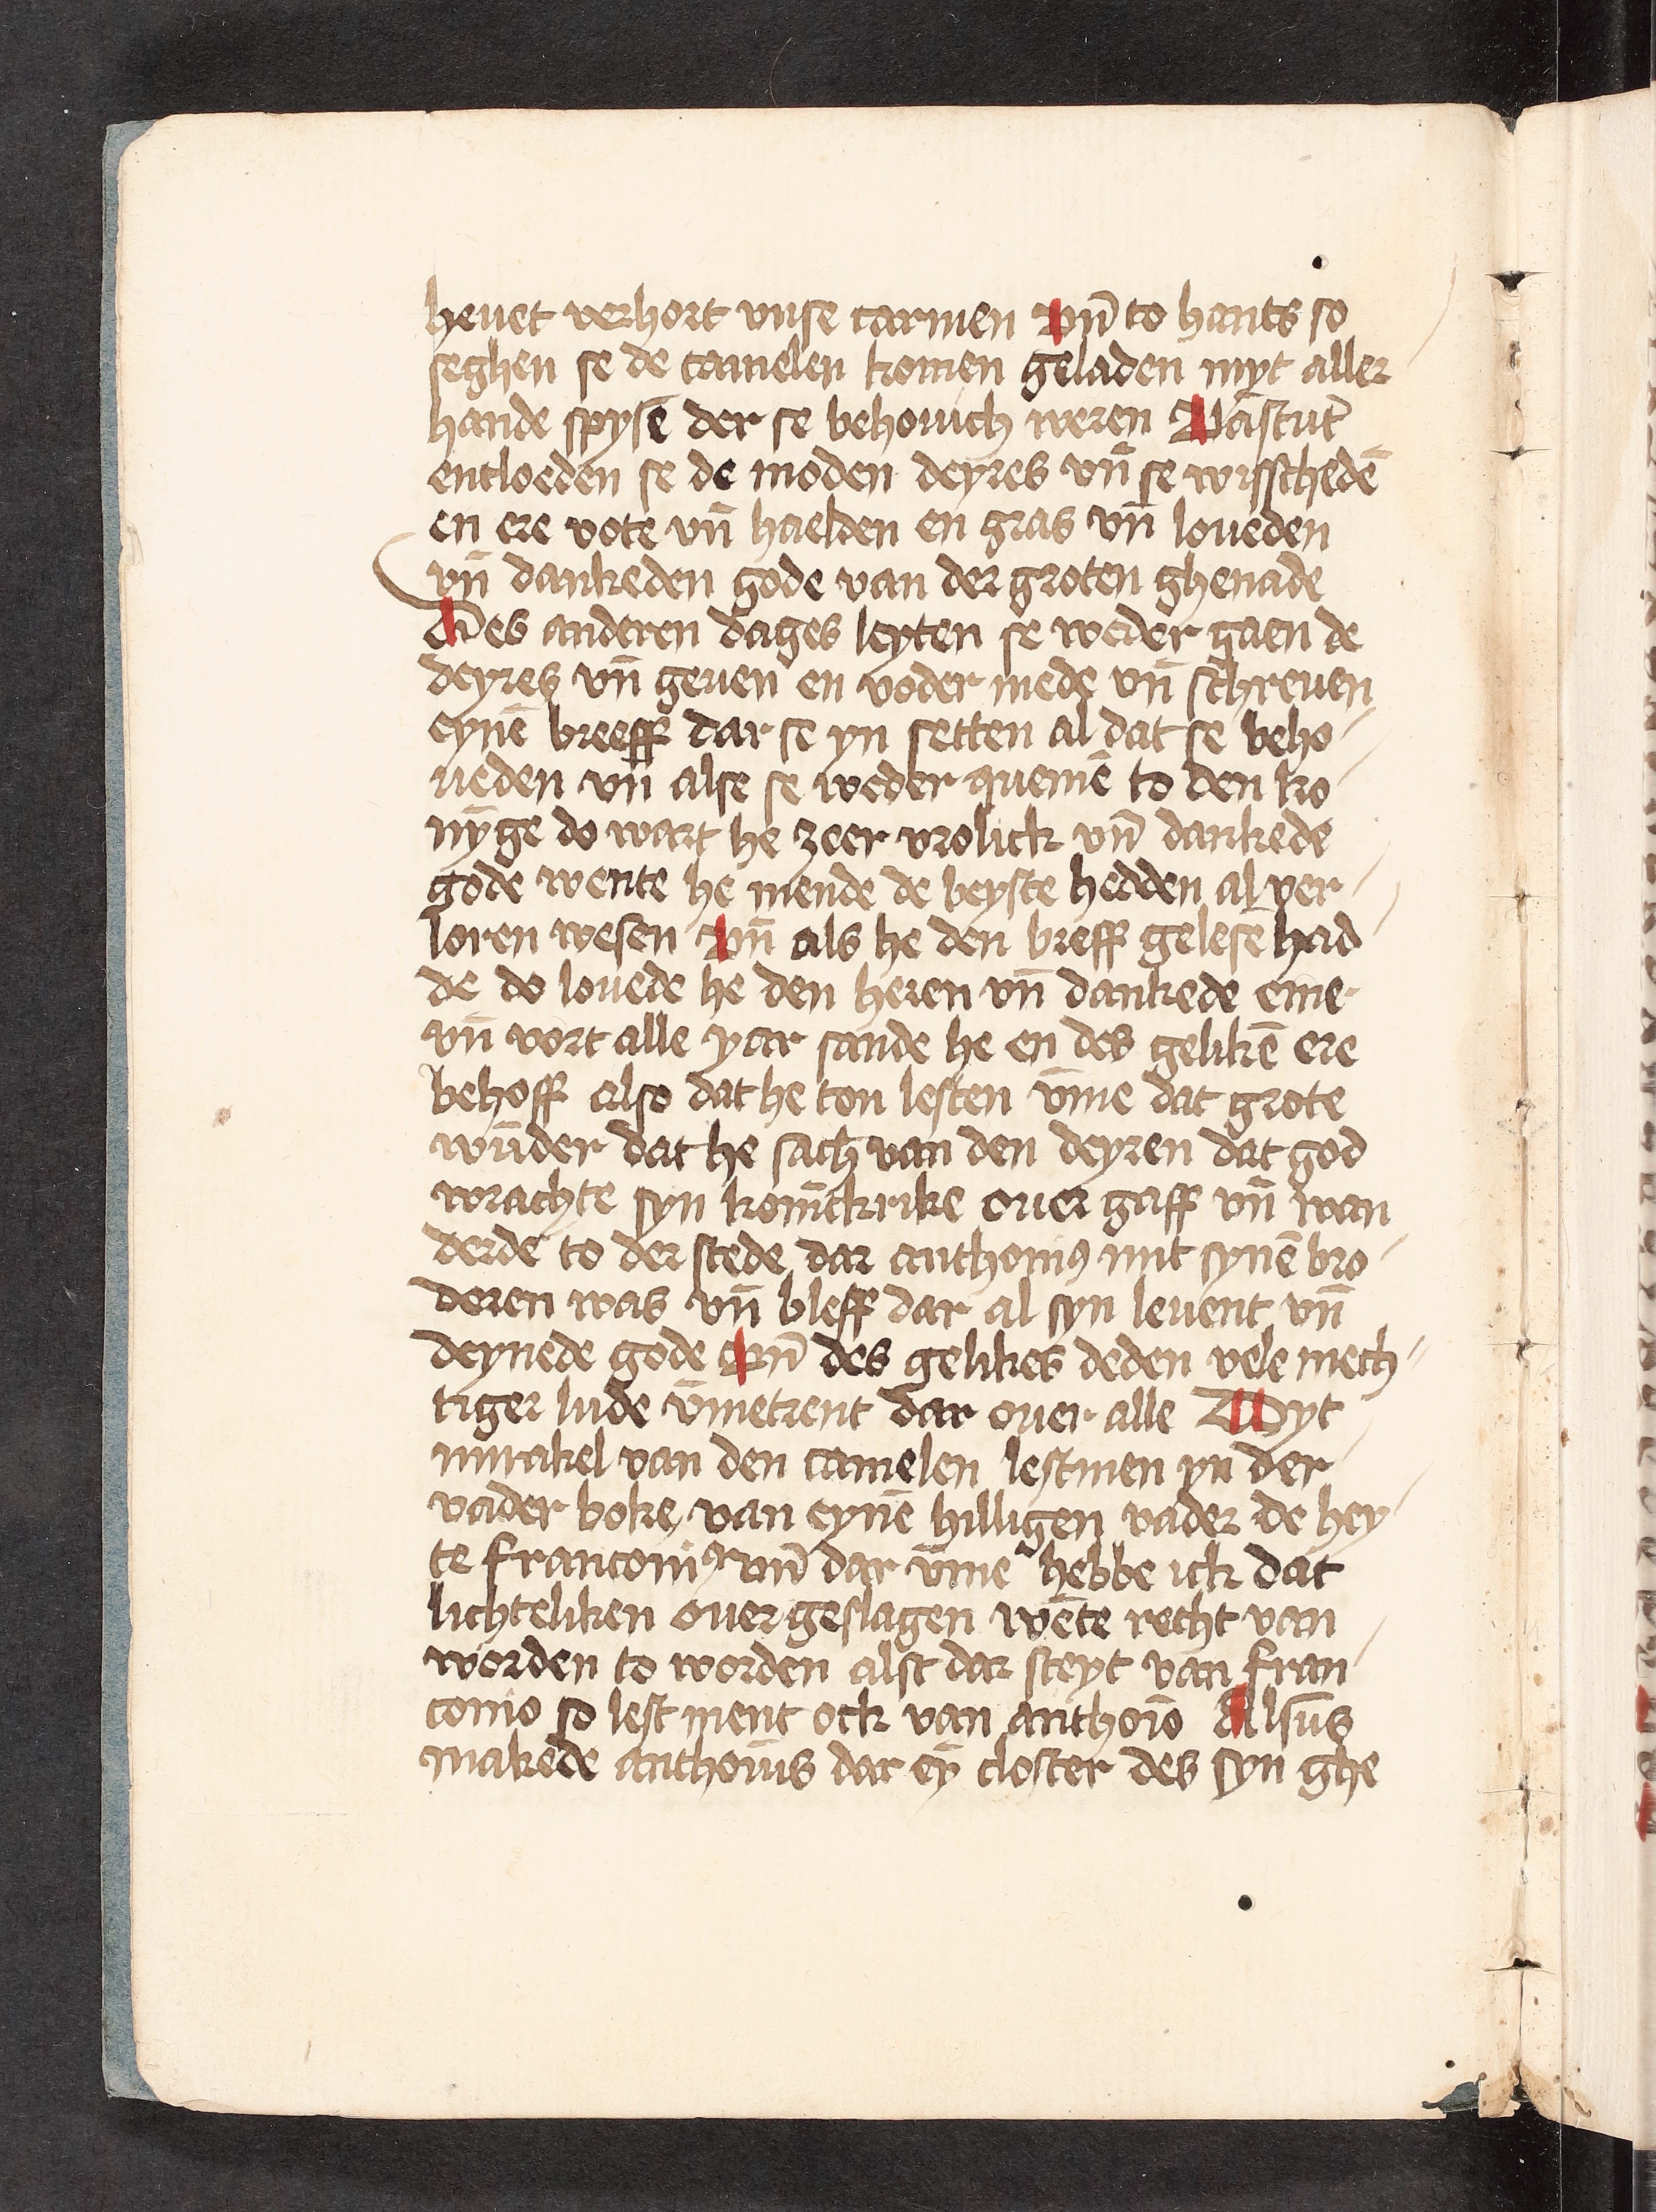 heuet verhort vnse carmen Vn̄ to hants so
seghen se de camelen komen geladen myt aller
hande spyse der se behouich weren Vāstut̉
entloeden se de moden deyres vn̄ se wisschedē
en ere vote vn̄ haelden en gras vn̄ loueden
vn̄ dankeden gode van der groten ghenade
Des anderen dages leyten se weder gaen de
deyres vn̄ geuen en voder mede vn̄ schreuen
eynē breeff dar se yn setten al dat se beho-
ueden vn̄ alse se weder quemē to den ko-
nyge do wart he zeer vrolick vn̄ dankede
gode wente he mende de beyste hedden al ver-
loren wesen Vn̄ als he den breff gelesē had-
de do louede he den heren vn̄ dankede eme
vn̄ vort alle yar sande he en des gelikē ere
behoff also dat he ton lesten v̄me dat grote
wūder dat he sach van den deyren dat god
wrachte syn konīckrike ouer gaff vn̄ wan
derde to der stede dar anthoniꝰ mit synē bro-
deren was vn̄ bleff dar al syn leuent vn̄
deynede gode Vn̄ des gelikes deden vele mech-
tiger lude v̄metrent dar ouer alle Dyt
mirakel van den camelen lestmen yn der
vader boke van eynē hilligen vader de hey-
te franconiꝰ vn̄ dar v̄me hebbe ick dat
lichteliken ouer geslagen wēte recht van
worden to worden alst dar steyt van fran-
conio so lest ment ock van anthoīo Alsūs
makede anthoīus dar eȳ closter des syn ghe